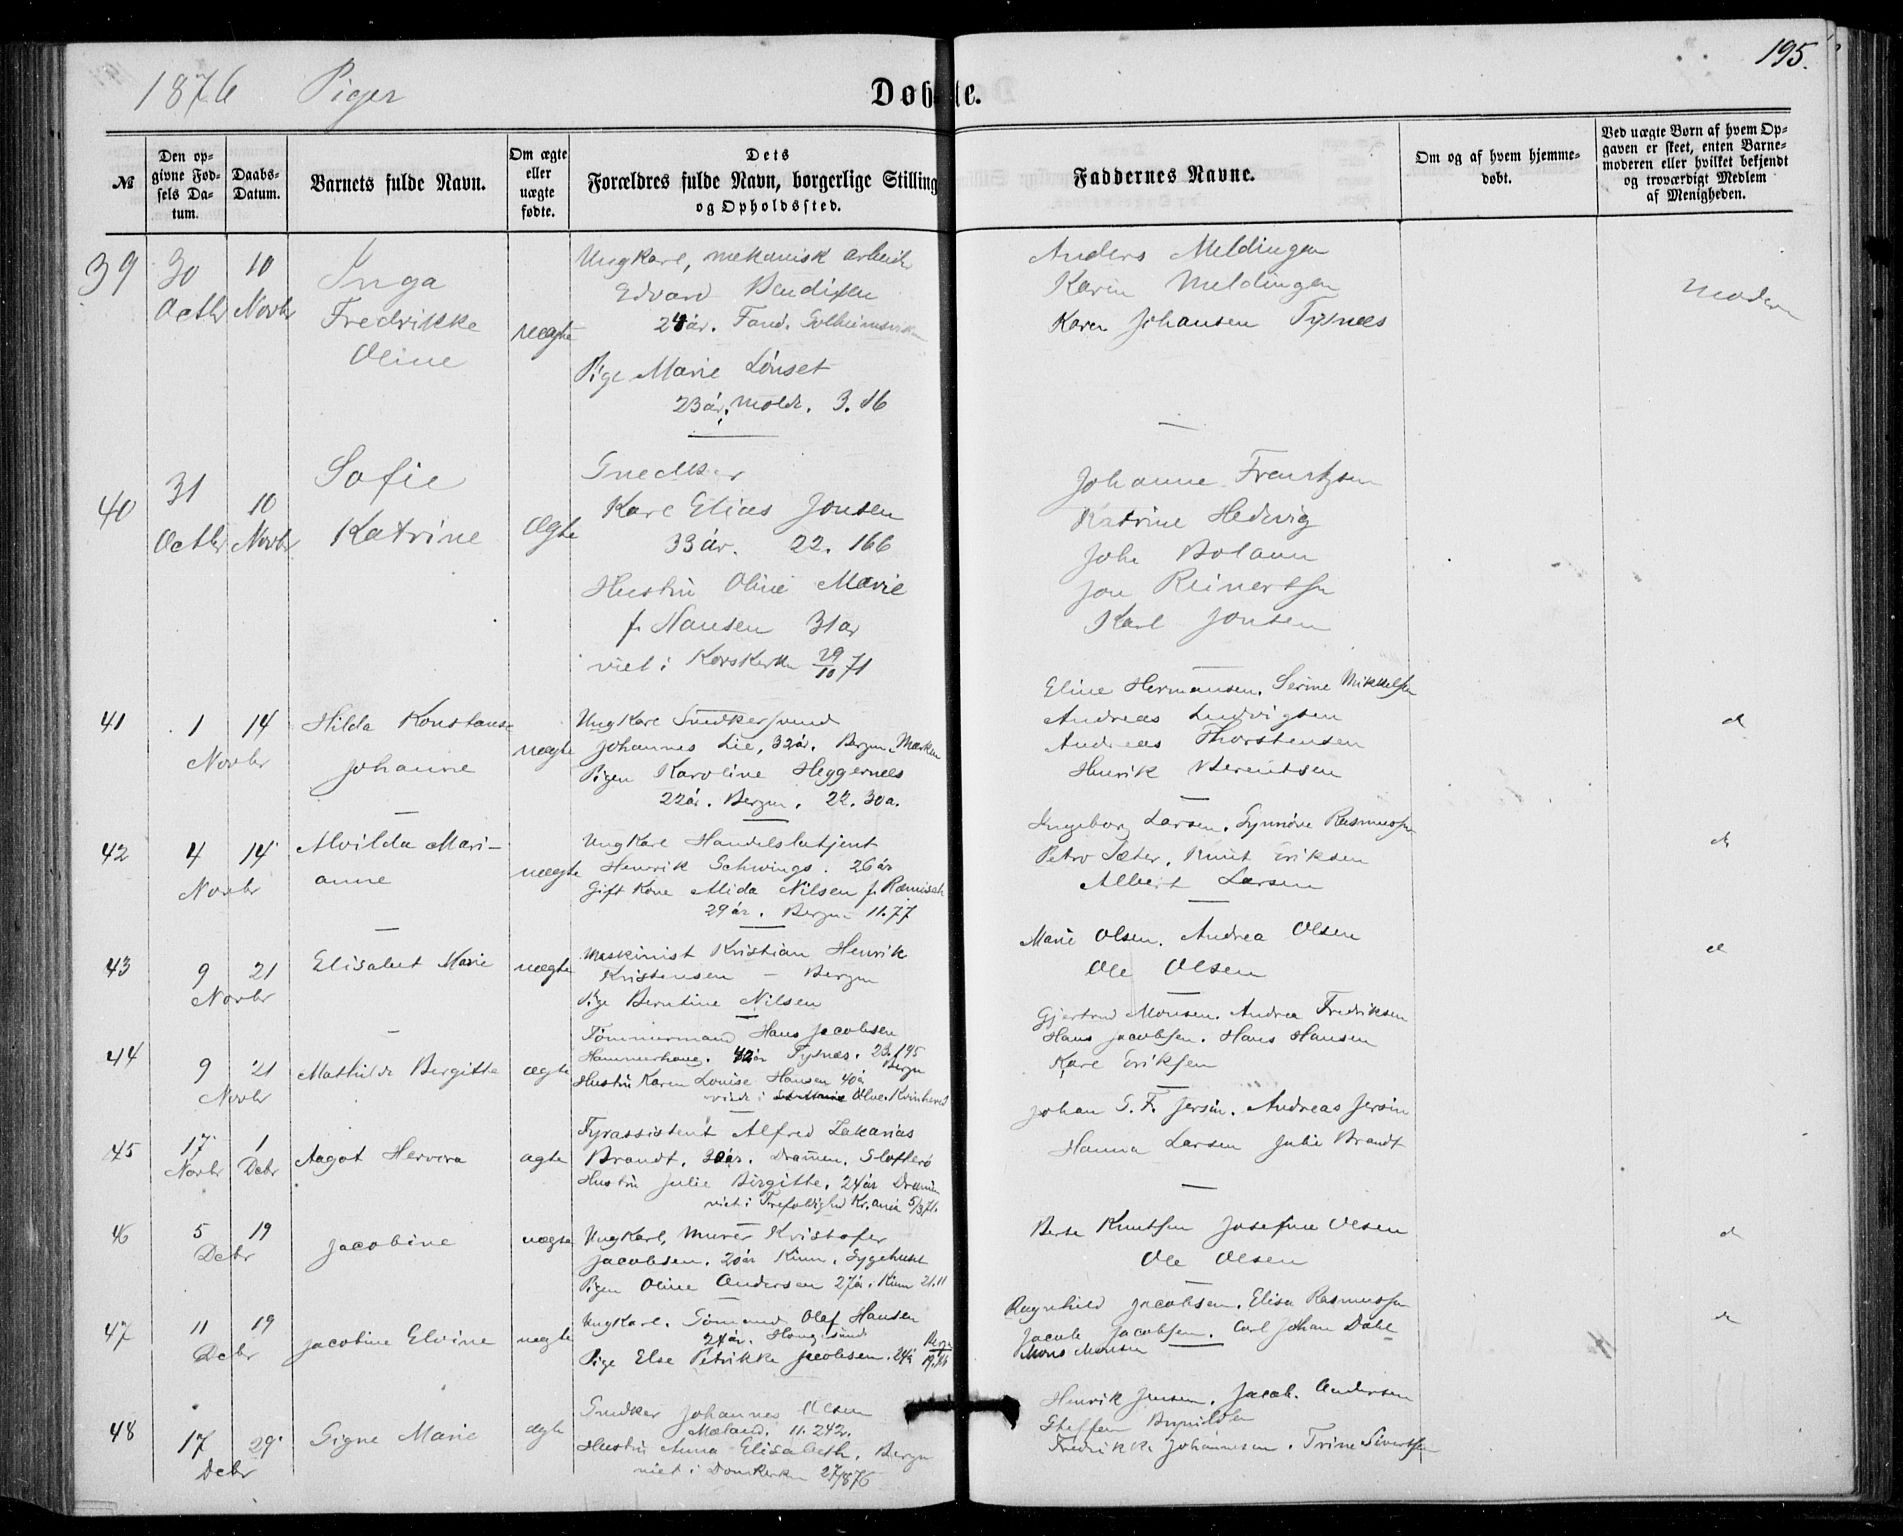 195.
1876 Piger
Døbte.
№
Den opgivne Fødsels Datum.
Daabs-Datum.
Barnets fulde Navn.
Om ægte eller uægte fødte.
Dets Forældres fulde Navn, borgerlige Stilling og Opholdssted.
Faddernes Navne.
Om og af hvem hjemmedøbt.
Ved uægte Børn af hvem Opgaven er skeet, enten Barnemoderen eller hvilket bekjendt og troværdigt Medlem af Menigheden.
39
30 Octbr
10 Novbr
Inga
Fredrikke
Oline
uægte
Ungkarl, mekanisk arbeid
Edvard Bendixen
24 år. Fand.
Pige Marie Lönset
23 år. Molde. 3. 16
Anders Meldingen
Karin Meldingen
Karen Johansen Tysnes
Moder
40
31 Octbr
10 Novbr
Sofie
Katrine
Ægte
Snedker
Karl Elias Jonsen
33 år. 22. 166
Hustru Oline Marie
f. Hansen 31 ar
viet i Korskirken 29/10 71
Johanne Frantzsen
Katrine Hedevig
Johe Bolann
Jon Reinertsen
Karl Jonsen
41
1 14
Novbr
Hilda Konstanse
Johanne
uægte
Ungkarl Snedkersvend
Johannes Lie, 32 år. Bergen. Marken
Pigen Karoline Heggernes
22 år. Bergen. 22. 30a.
Eline Hermansen. Serine Mikkelsen
Andreas Ludvigsen
Andreas Thorstensen
Henrik Berentsen
d
42
4 14
Novbr
Alvilda Marianne
uægte
Ungkarl Handelsbetjent
Henrik Schwings. 26 år
Gift Kone Alida Nilsen f.
29 år. Bergen 11.77
Ingeborg Larsen. Synnöve Rasmussen
Petro Sæter. Knut Eriksen
Albert Larsen
d
43
9 21
Novbr
Elisabet Marie
uægte
Maskinist Kristian Henrik
Kristensen - Bergen
Pige Berntine Nilsen
Marie Olsen. Andrea Olsen
Ole Olsen
d
44
9 21
Novbr
Mathilde Bergitta
ægte
Tömmermand Hans Jacobsen
Hammerhaug. 42 år Tysnæs. 23. 195
Bergen
Hustru Karen Louise Hansen 40 å
viede i Ølve. Kvinherred
Gjertrud Monsen. Andrea Fredriksen
Hans Jacobsen. Hans Hansen
Karl Eriksen
45
17 Novbr
1 Debr
Aagot Hervora
ægte
Fyrassistent Alfred Zakarias
Brandt, 30 år. Drammen. Slotterö
Hustru Julie Birgitte. 24 år Drammen
viet i Trefoldighed Kr.ania 5/3 71.
Johan G. F. Jersin. Andreas Jersin
Hanna Larsen Julie Brandt
46
5 19
Debr
Jacobine
uægte
Ungkarl, Murer Kristofer
Jacobsen. 20 år Kinn. Sygehuset
Pigen Oline Andersen 27 år. Kinn 21.11
Berte Knutsen Josefine Olsen
Ole Olsen
d
47
11 19
Debr
Jacobine Elvine
uægte
Ungkarl. Sömand Olaf Hansen
24 år. Haugesund
Pige Else Petrikke Jacobsen. 24 å
Ragnhild Jacobsen. Elisa Rasmussen
Jacob Jacobsen. Carl Johan Dahl
Mons Monsen
d
48
17 29
Debr
Signe Marie
ægte
Snedker Johannes Olsen
Mæland. 11. 242.
Hustru Anna Elisabeth. Bergen
viet i Domkirken 27/1876
Henrik Jensen. Jacob. Andersen
Steffen Brynildsen
Fredrikke Johannesen. Trine Sivertsen